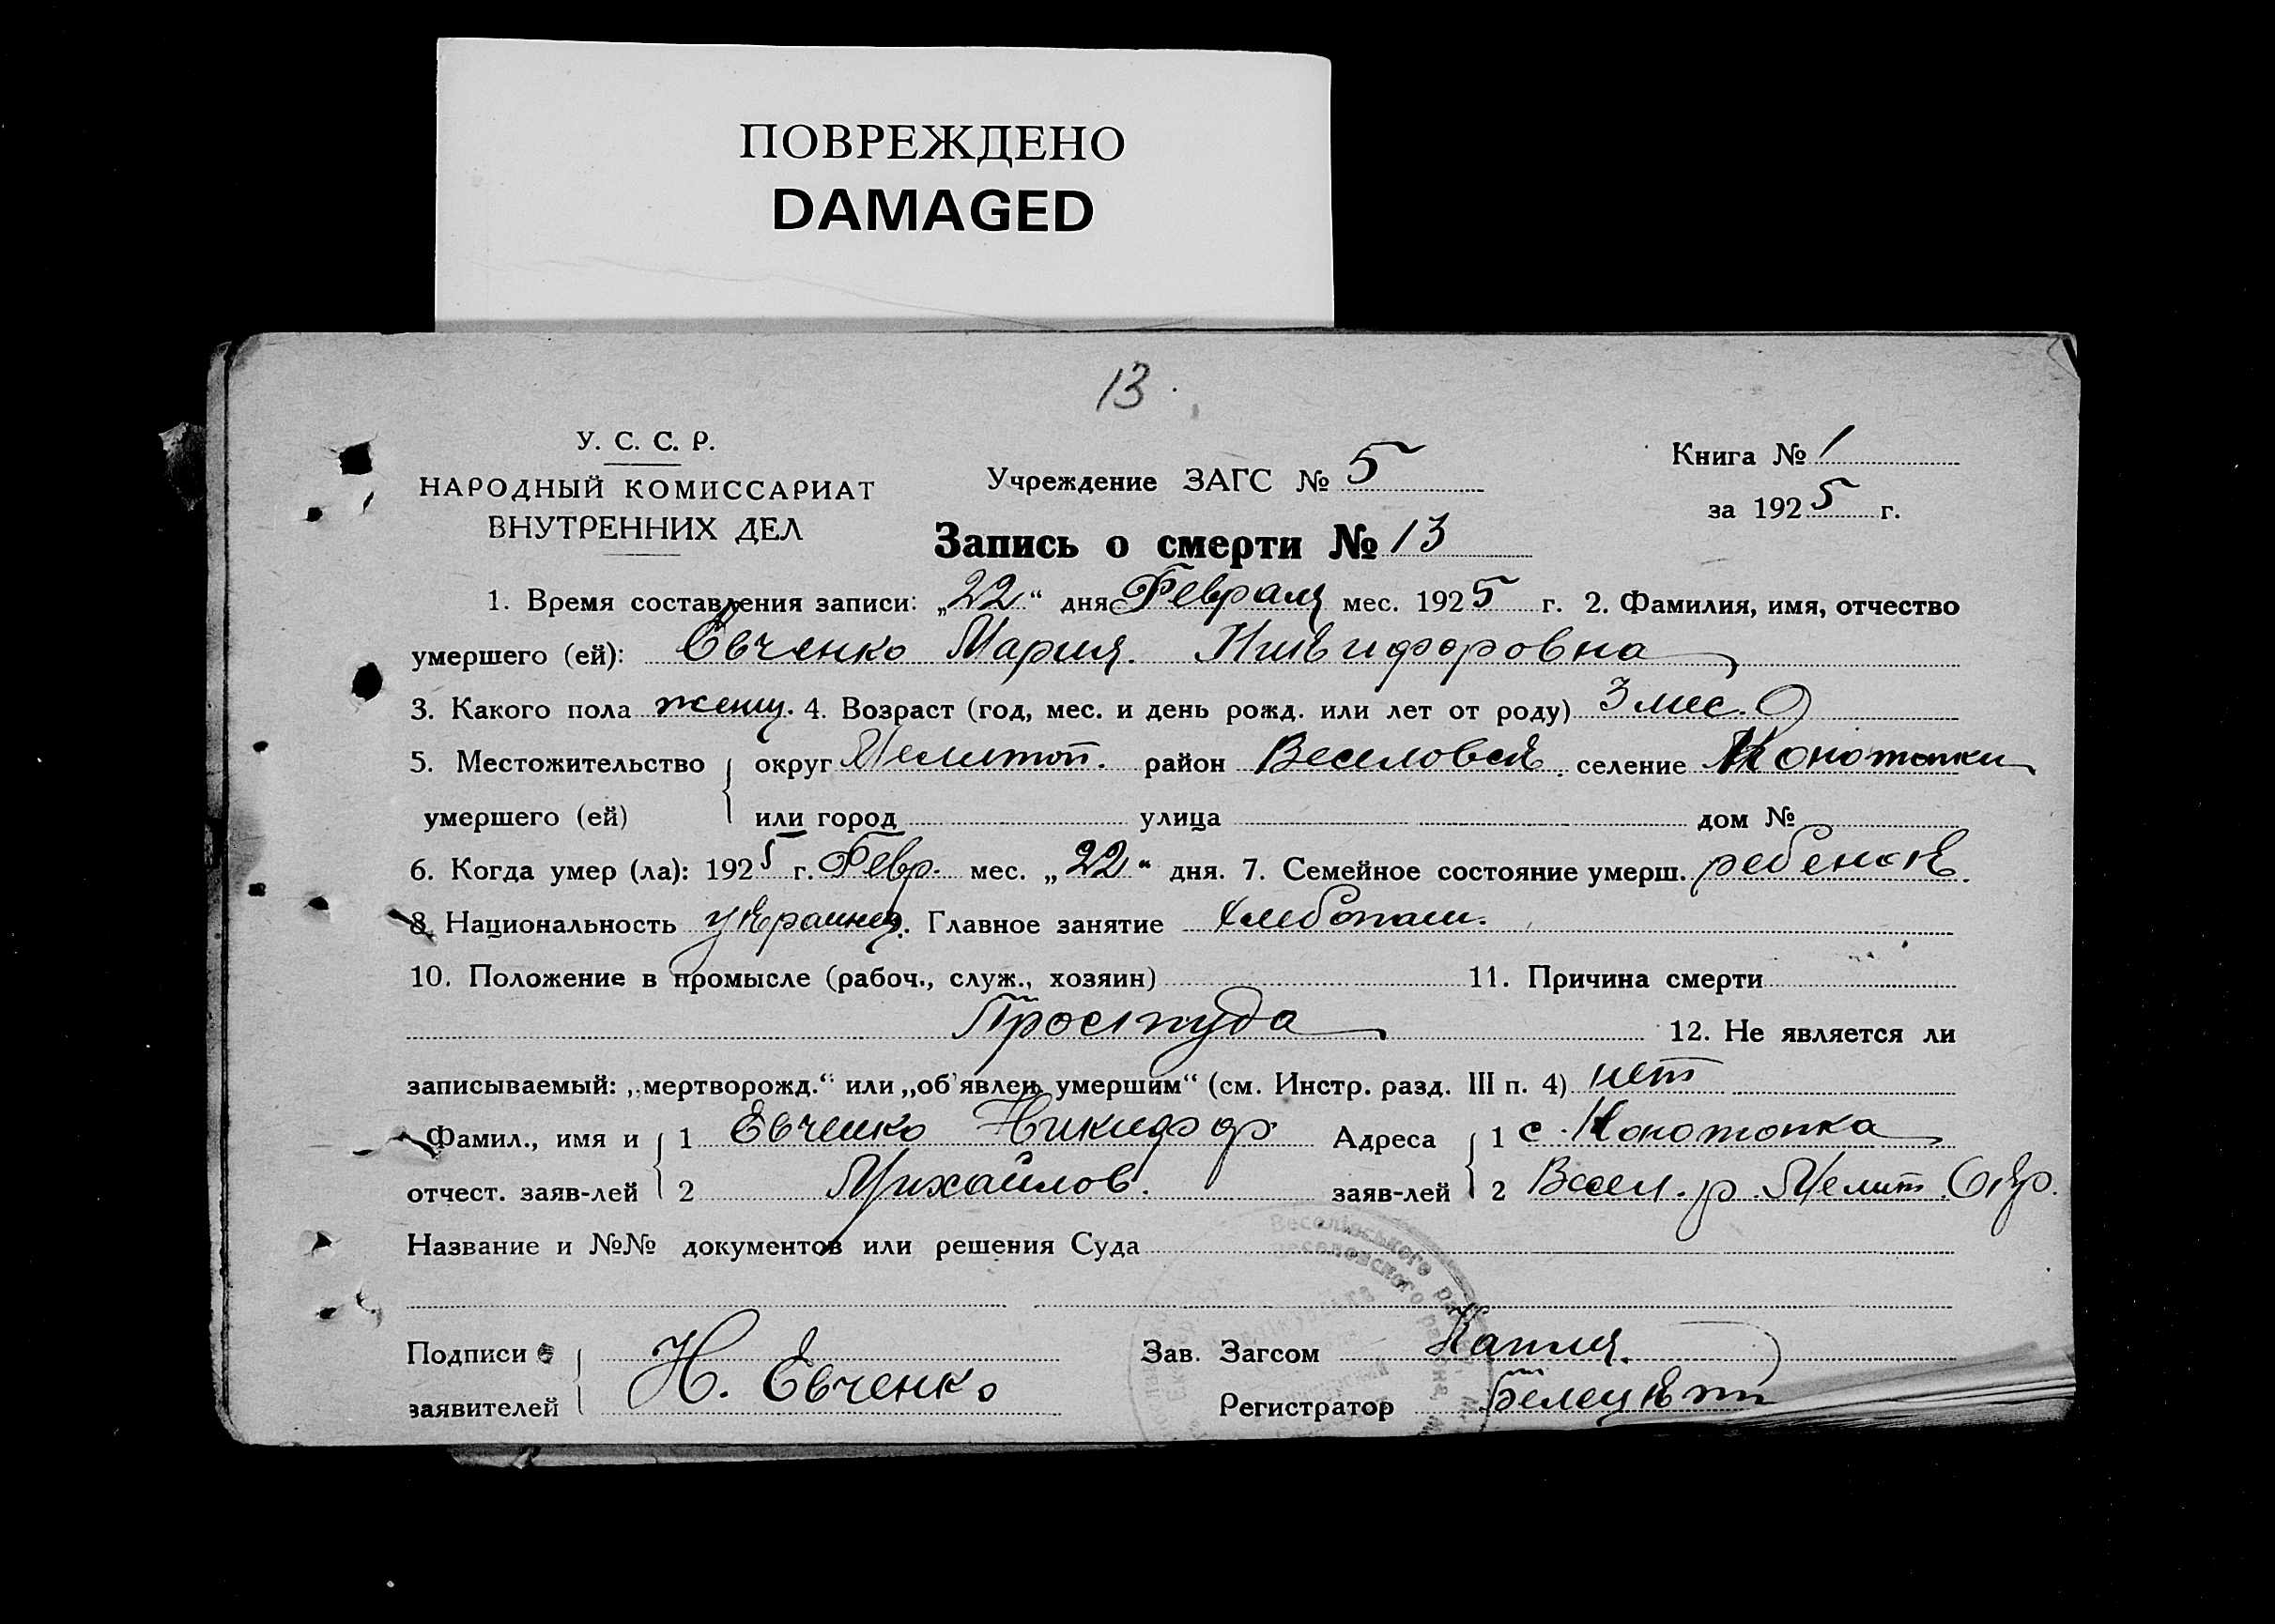 ПОВРЕЖДЕНО
DAMAGED
13.
У. С. С. Р.
НАРОДНЫЙ КОМИССАРИАТ
ВНУТРЕННИХ ДЕЛ
Учреждение ЗАГС № 5
Книга № 1
за 1925 г.
Запись о смерти № 13
1. Время составления записи: „22“ дня Февраля мес. 1925 г. 2. Фамилия, имя, отчество
умершего (ей): Евченко Мария Никифоровна
3. Какого пола женск. 4. Возраст (год, мес. и день рожд. или лет от роду) 3 мес.
5. Местожительство округ Мелитоп. район Веселовск. селение Конотопки
умершего (ей) или город улица дом №
6. Когда умер (ла): 1925 г. Февр. мес. „22“ дня. 7. Семейное состояние умерш. ребенок.
8. Национальность украинец. Главное занятие хлебопаш.
10. Положение в промысле (рабоч., служ., хозяин) 11. Причина смерти
Простуда 12. Не является ли
записываемый: „мертворожд.“ или „об'явлен умершим“ (см. Инстр. разд. III п. 4) нет
Фамил., имя и 1 Евченко Никифор Адреса 1 с. Конотопка
отчест. заяв-лей 2 Михайлов. заяв-лей 2 Весел. р. Мелит. Окр.
Название и №№ документов или решения Суда
Веселівського
Веселовского района
Подписи Зав. Загсом Капля.
заявителей Н. Евченко Регистратор Белецкий